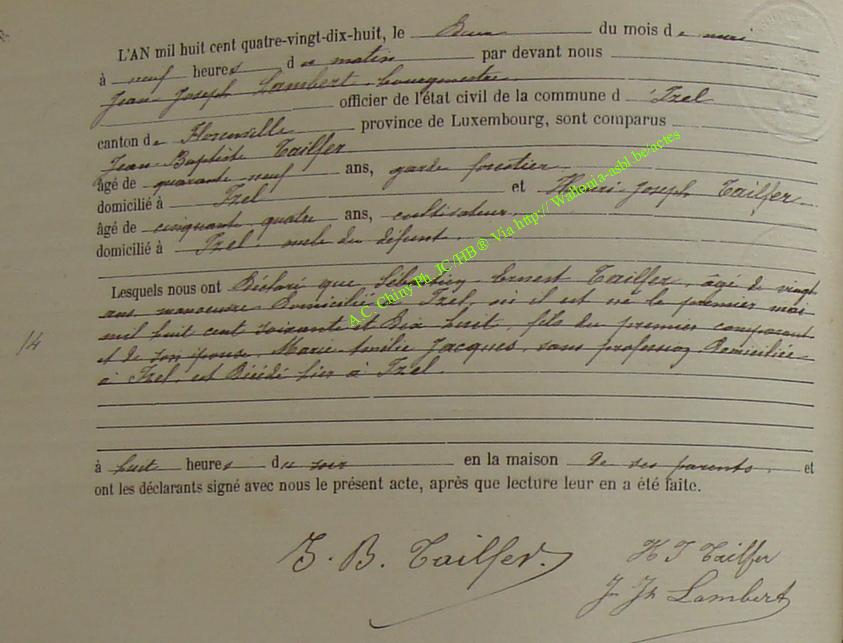 L'AN mil huit cent quatre-vingt-dix-huit, le Deux du mois de mai
à neuf heures du matin par devant nous
Jean Joseph Lambert, bourgmestre
officier de l'état civil de la commune d'Izel
canton de Florenville province de Luxembourg, sont comparus
Jean Baptiste Tailfer
âgé de quarante neuf ans, garde forestier
domicilié à Izel et Henri Joseph Tailfer
âgé de cinquante quatre ans, cultivateur
domicilié à Izel oncle du défunt.
Lesquels nous ont Déclaré que Sébastien Ernest Tailfer, âgé de vingt
ans manoeuvre Domicilié à Izel, où il est né le premier mai
mil huit cent soixante et Dix huit, fils du premier comparant
et de son épouse, Marie Amélie Jacques, sans profession Domiciliée
à Izel, est Décédé hier à Izel.
14
à huit heures du soir en la maison de ses parents, et
ont les déclarants signé avec nous le présent acte, après que lecture leur en a été faite.
J. B. Tailfer.
H J Tailfer
J. Jh Lambert
A.C. Chiny Ph. JC/HB ® Via http:// Wallonia-asbl.be/actes